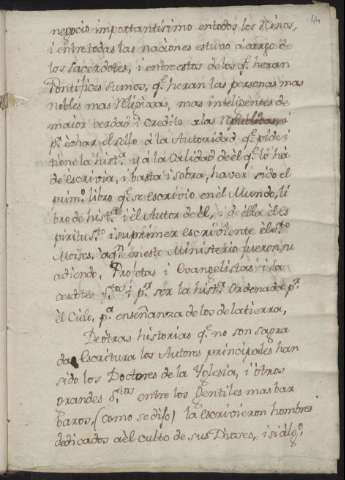 negocio importantissimo en todos los Reinos,
i entre todas las naciones estuvo a cargo de
los Sacerdotes, i entre estos de los q.e heran
Pontifices sumos, q.e heran las personas mas
nobles mas Religiosas, mas inteligentes de
maior verdad i credito a las Republicas,
p.a echar el sello à la Autoridad q.e pide i
tiene la hist.a y a la Calidad de èl q.e lo hà
de escrivir, i basta i sobra, haver sido el
prim.o libro q.e se escrivio en el Mundo, li
bro de hist.a i el Autor de èl, i de ella el Es
piritu S.to i su primer escriviente el S.to
Moises, à q.n en este Ministerio fueron su
cediendo, Profetas i Evangelistas i
i p.r ser la hist.a Ordenada p.r
el Cielo, p.a enseñanza de los de la tierra,
De otras historias q.e no son sagra
da Escritura los Autores principales han
sido los Doctores de la Yglesia, i otros
grandes S.tos entre los Gentiles mas bar
baros, (como se dijo) la escrivieron hombres
dedicados a el culto de sus Dioses, i si algo